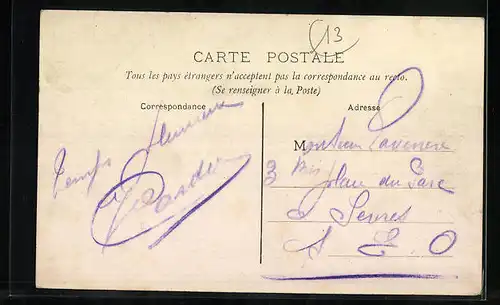 13
CARTE POSTALE
Tous les pays étrangers n'acceptent pas la correspondance au recto.
(Se renseigner à la Poste)
Correspondance
Adresse
Temps
Monsieur
3 bis
du Parc
à Sèvres
S E O